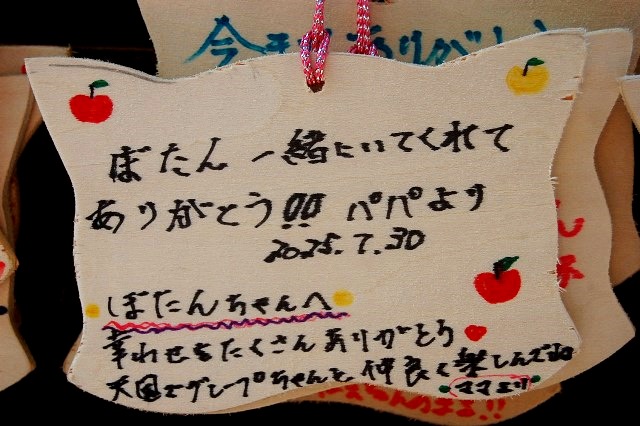 今までありがとう
ぼたん 一緒にいてくれて
ありがとう!!! パパより
2025.7.30
ぼたんちゃんへ
幸わせをたくさんありがとう
天国でグレープちゃんと仲良く楽しんでね
ママより